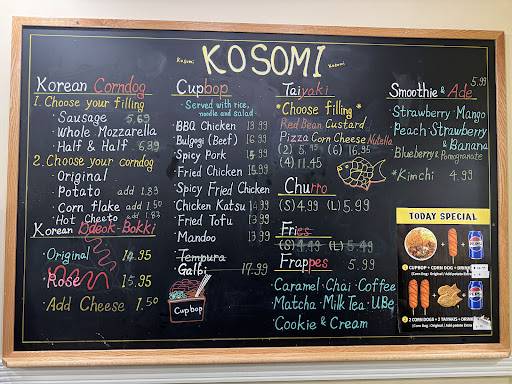 Kosomi KOSOMI Kosomi
Korean Corndog
1. Choose your filling
· Sausage 5.69
· Whole Mozzarella
· Half & Half 6.39
2. Choose your corndog
· Original
· Potato add 1.83
· Corn flake add 1.50
· Hot Cheeto add 1.83
Korean Ddeok-Bokki
· Original 14.95
· Rose 15.95
· Add Cheese 1.50
Cupbop
· Served with rice,
noodle and salad ·
· BBQ Chicken 13.99
· Bulgogi (Beef) 16.99
· Spicy Pork 15.99
· Fried Chicken 15.99
· Spicy Fried Chicken
· Chicken Katsu 14.99
· Fried Tofu 13.99
· Mandoo 13.99
Tempura
Galbi 17.99
Cupbop
Taiyaki
*Choose filling*
Red Bean Custard
Pizza Corn Cheese Nutella
(2) 5.95 (6) 16.95
(4) 11.45
Churro
(S) 4.99 (L) 5.99
Fries
(S) 4.49 (L) 5.49
Frappes 5.99
· Caramel · Chai · Coffee
· Matcha · Milk Tea · UBe
· Cookie & Cream
Smoothie & Ade 5.99
· Strawberry · Mango
· Peach · Strawberry
& Banana
· Blueberry & Pomegranate
*Kimchi 4.99
TODAY SPECIAL
CUPBOP + CORN DOG + DRINK
(Corn Dog : Original / Add potato Extra
2 CORN DOGS + 2 TAIYAKIS + DRINK
(Corn Dog : Original / Add potato Extra